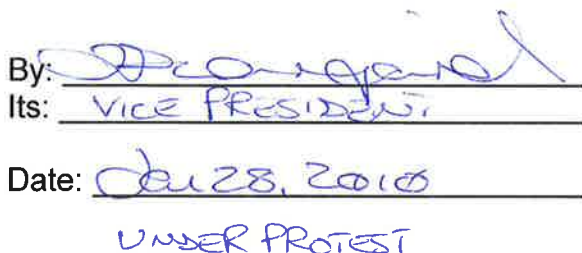 By:
Its: VICE PRESIDENT
Date: Jan 28, 2010
UNDER PROTEST